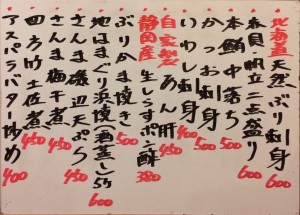 北海道天然ぶり刺身 600
春貝帆立二点盛り 600
本鮪中落ち 500
かつお刺身 500
いわし刺身 400
自家製あん肝 450
静岡産生しらすポン酢 380
ぶりかま焼き 500
地はまぐり浜焼酒蒸し 55 600
さんま磯辺天ぷら 450
さんま梅干煮 450
四方竹土佐煮 450
アスパラバター炒め 400